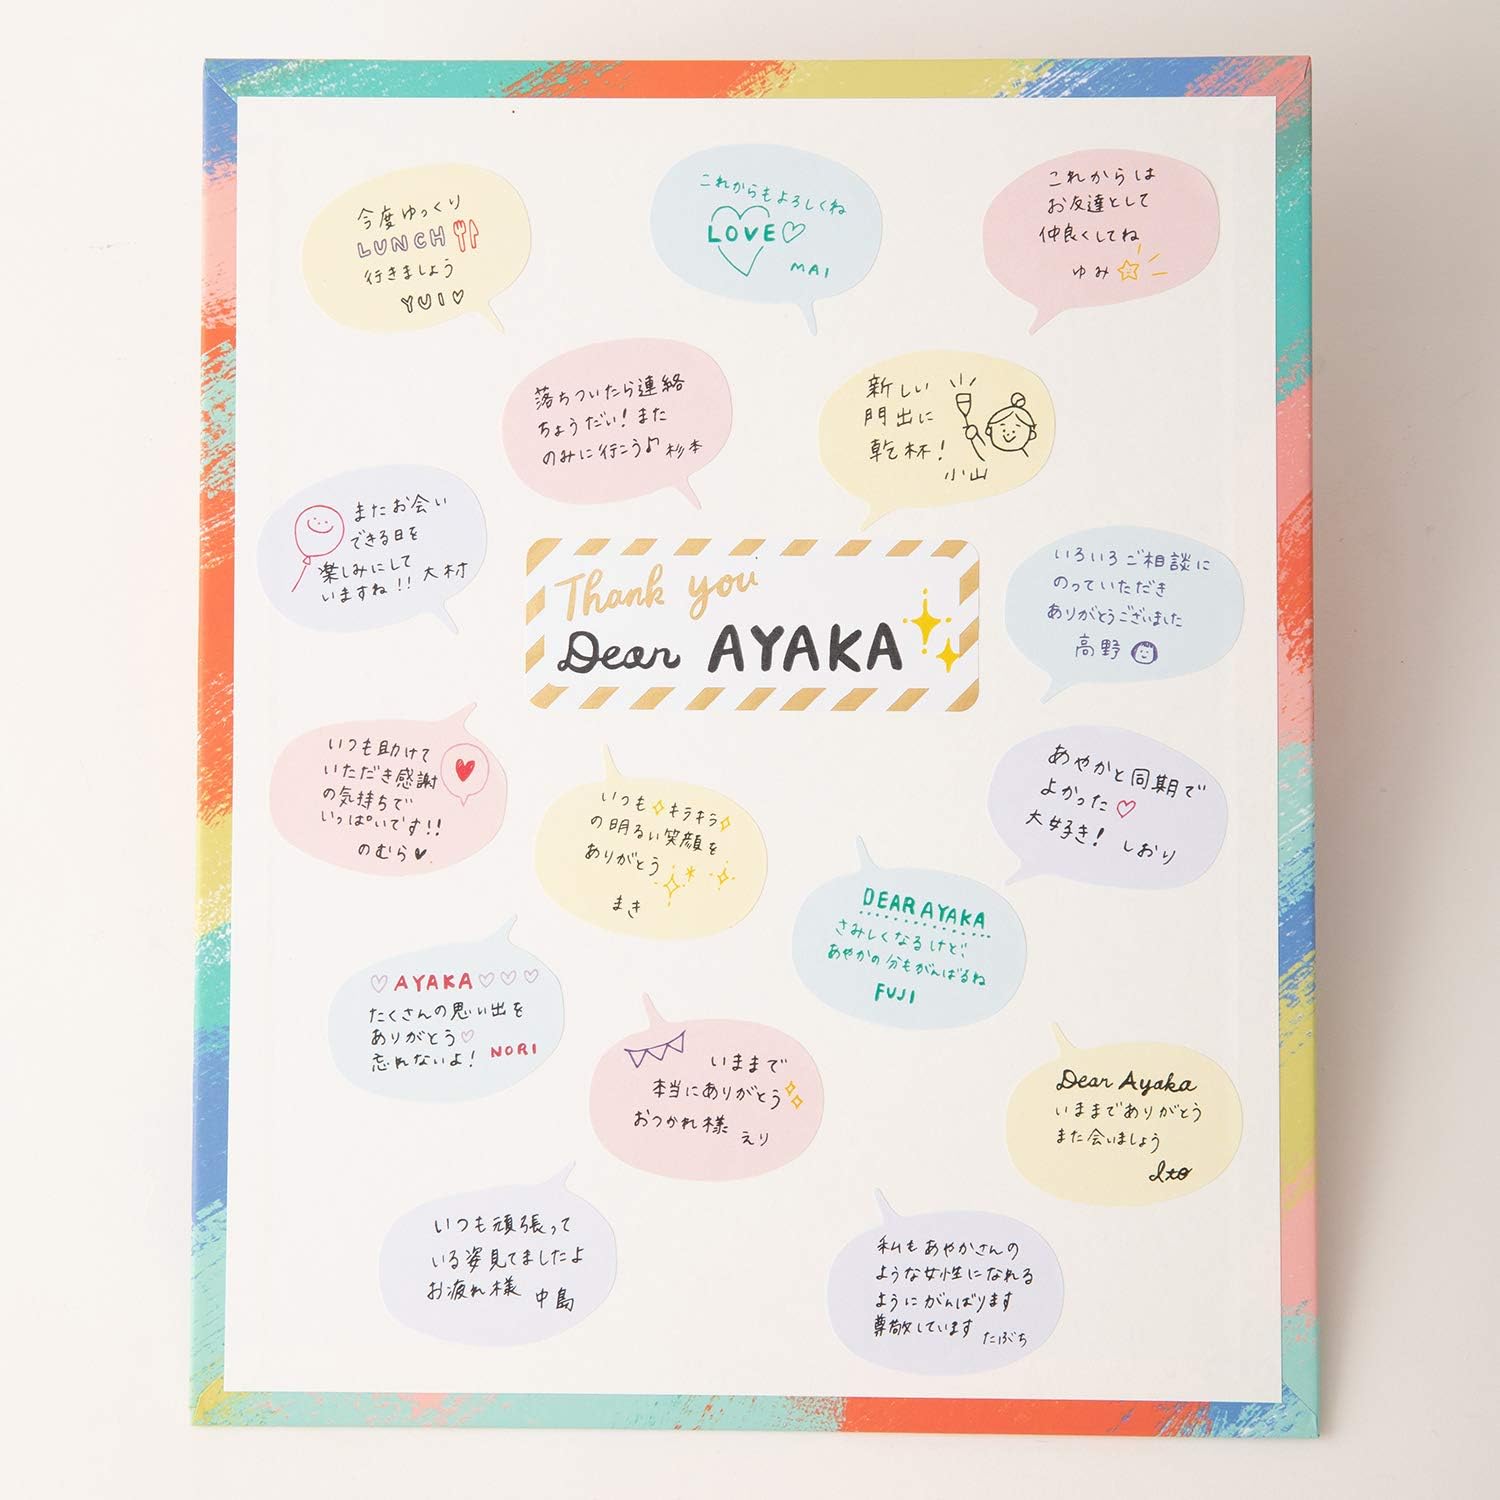 今度ゆっくり
LUNCH
行きましょう
YUI♡
これからもよろしくね
LOVE♡
MAI
これからは
お友達として
仲良くしてね
ゆみ
落ちついたら連絡
ちょうだい!また
のみに行こう♪ 杉本
新しい
門出に
乾杯!
小山
またお会い
できる日を
楽しみにして
いますね!! 大村
Thank you
Dear AYAKA
いろいろご相談に
のっていただき
ありがとうございました
高野
いつも助けて
いただき感謝
の気持ちで
いっぱいです!!
のむら♥
いつもキラキラ
の明るい笑顔を
ありがとう
まき
あやかと同期で
よかった♡
大好き! しおり
DEAR AYAKA
さみしくなるけど、
あやかの分もがんばるね
FUJI
♡AYAKA♡♡♡
たくさんの思い出を
ありがとう♡
忘れないよ! NORI
いままで
本当にありがとう
おつかれ様 えり
Dear Ayaka
いままでありがとう
また会いましょう
Ito
いつも頑張って
いる姿見てましたよ
お疲れ様 中島
私もあやかさんの
ような女性になれる
ようにがんばります
尊敬しています たぶち